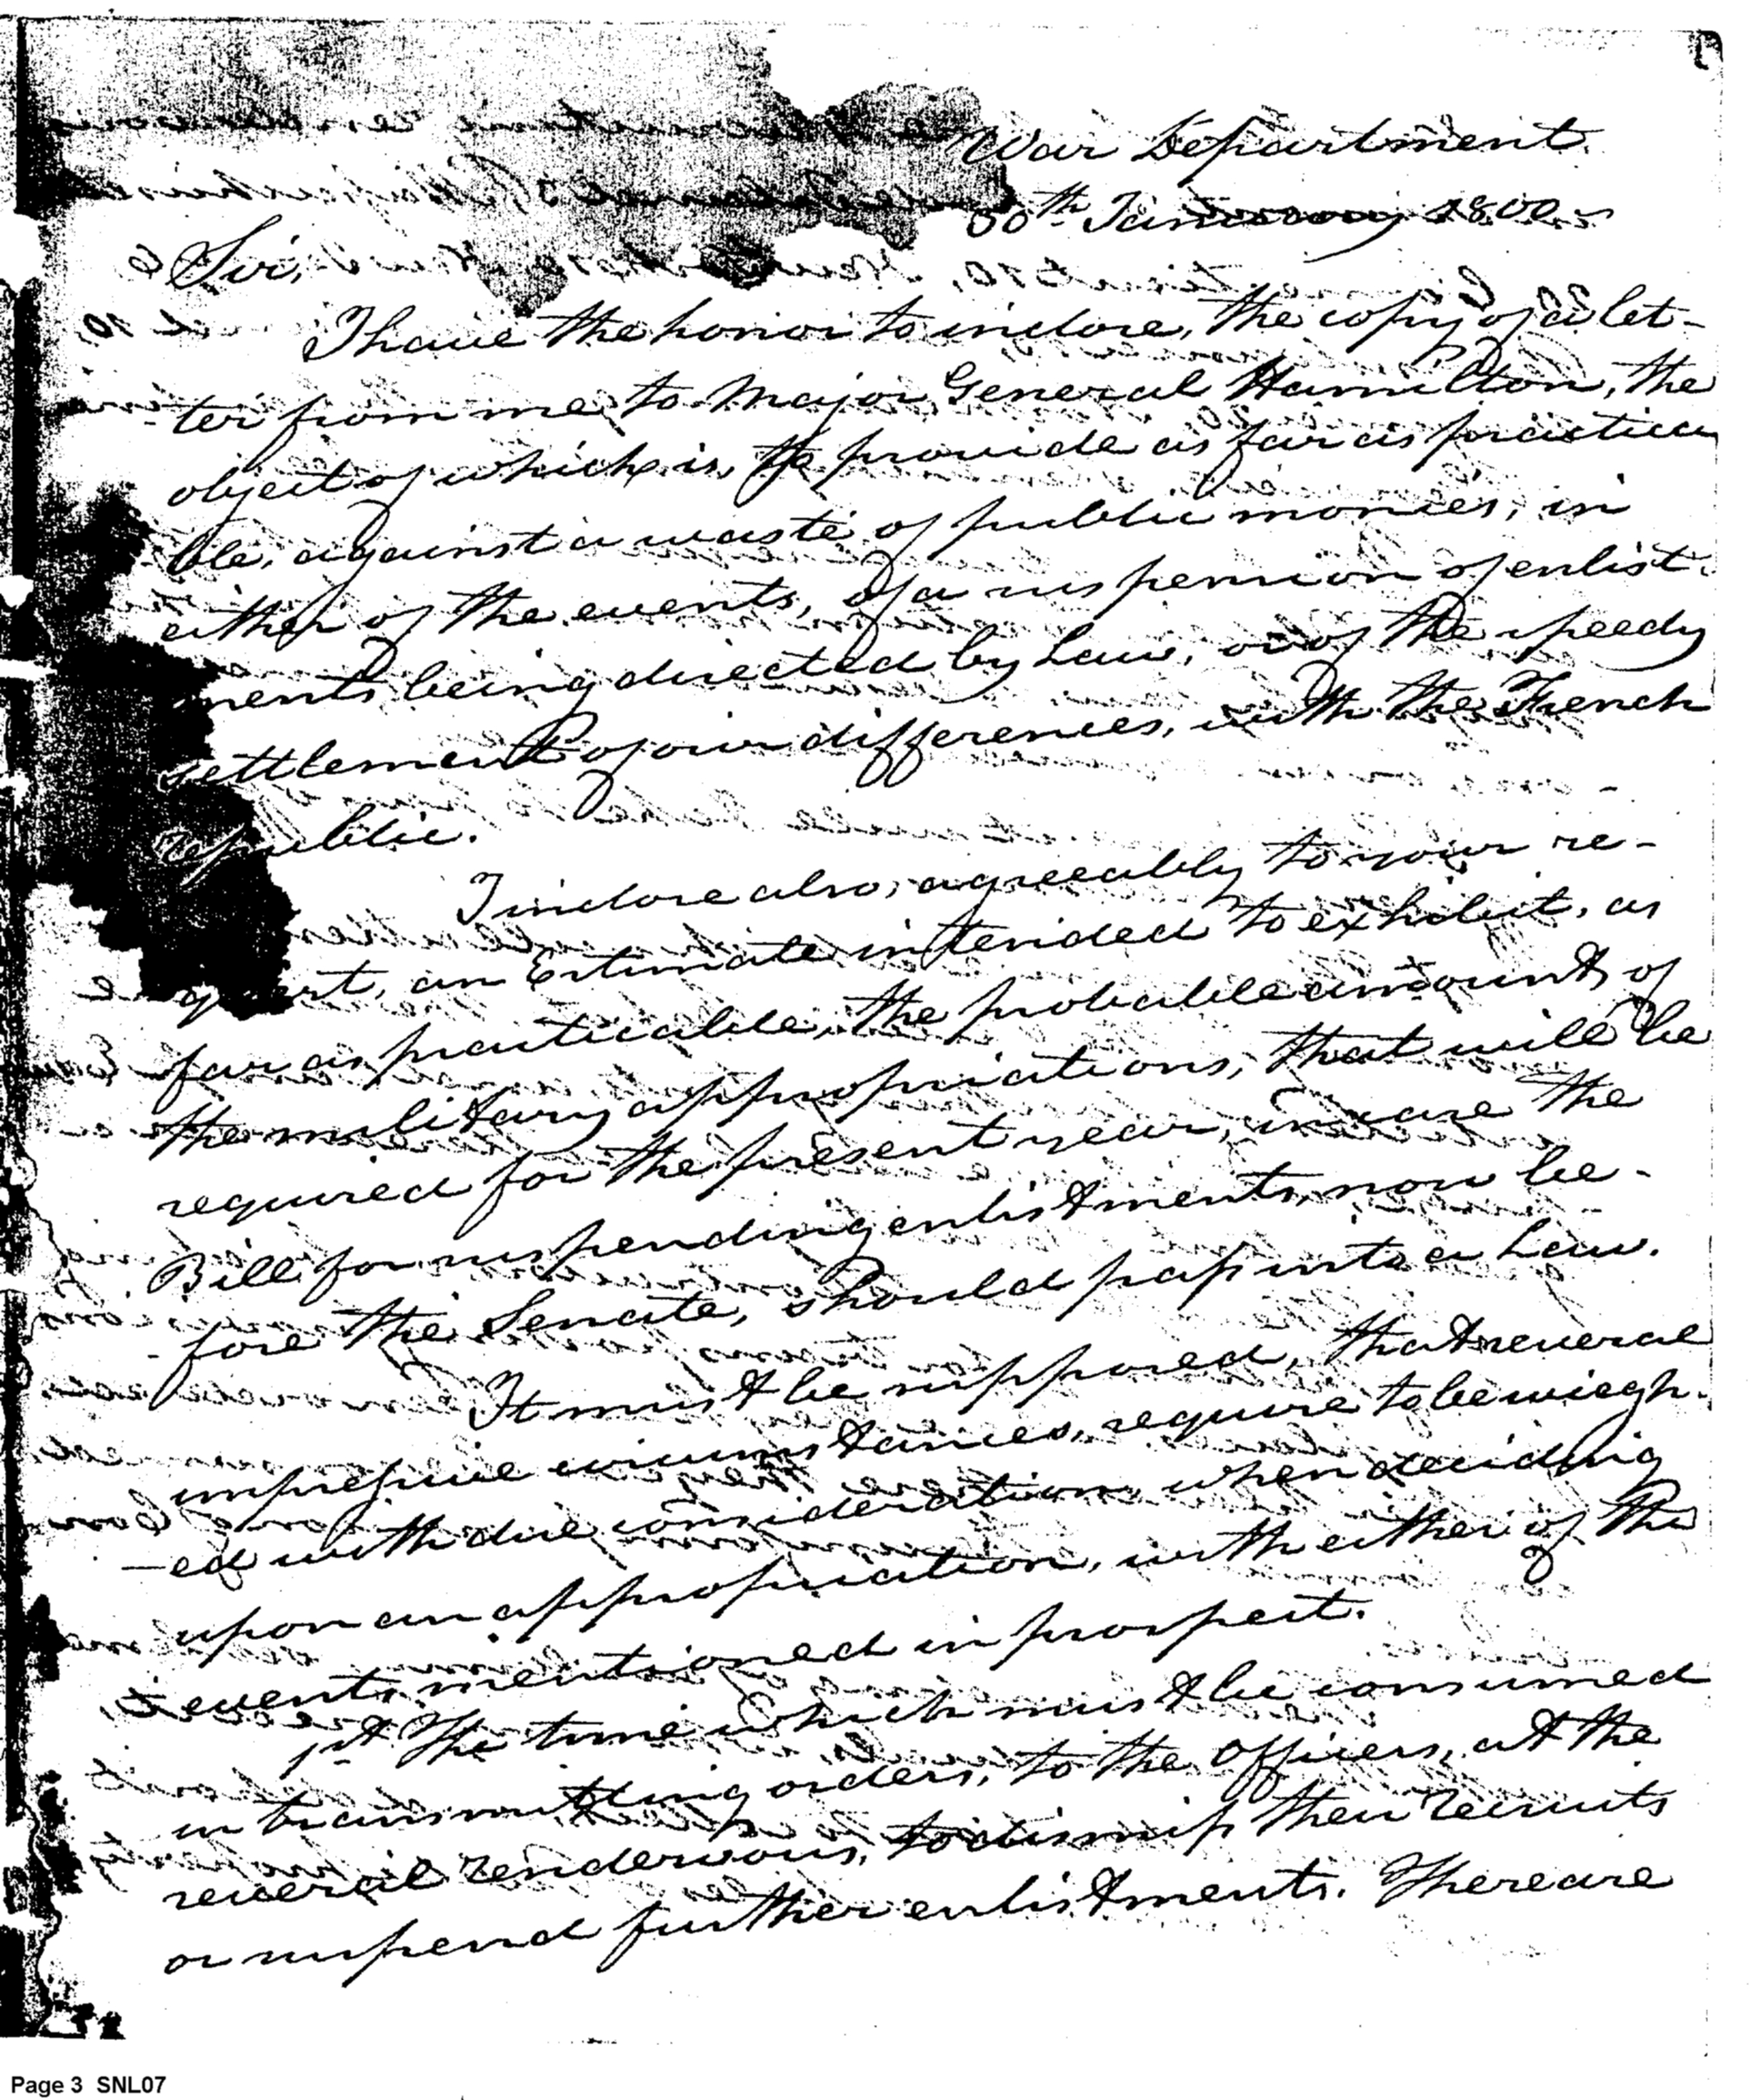 War Department.
30th January 1800.
Sir,
I have the honor to inclose, the copy of a let-
-ter from me, to Major General Hamilton, the
object of which is, to provide as far as practica
ble, against a waste of public monies, in
either of the events, of a suspension of enlist-
ments being directed by Law, or of the speedy
settlement of our differences, with the French
republic.
I inclose also, agreeably to your re-
quest, an Estimate intended to exhibit, as
far as practicable, the probable amount, of
the military appropriations, that will be
required for the present year, in case the
Bill for suspending enlistments, now be-
-fore the Senate, should pass into a Law.
It must be supposed, that several
impressive circumstances, require to be wiegh-
-ed with due consideration, when deciding
upon an appropriation, with either of the
events mentioned in prospect.
1st The time which must be consumed
in transmitting orders, to the Officers, at the
several rendezvous, to dismiss their recruits
or suspend further enlistments. There are
Page 3 SNL07